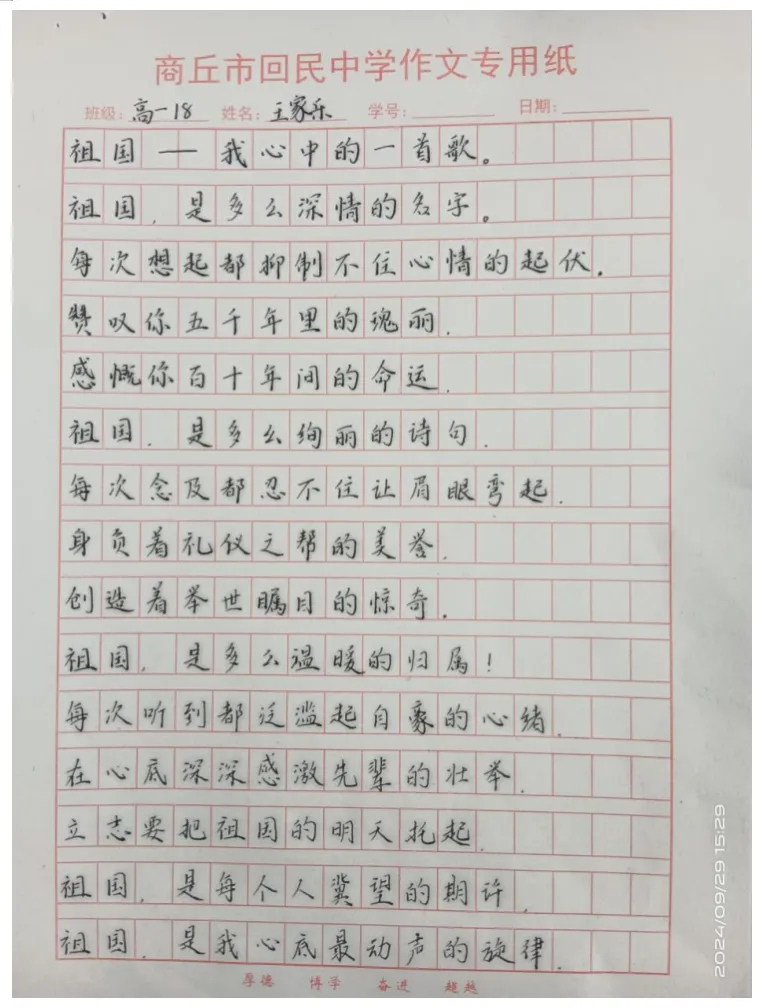 商丘市回民中学作文专用纸
班级: 高一18 姓名: 王家乐 学号: 日期:
祖国 — 我心中的一首歌。
祖国, 是多么深情的名字。
每次想起都抑制不住心情的起伏.
赞叹你五千年里的瑰丽.
感慨你百十年间的命运.
祖国. 是多么绚丽的诗句.
每次念及都忍不住让眉眼弯起.
身负着礼仪之帮的美誉.
创造着举世瞩目的惊奇.
祖国, 是多么温暖的归属!
每次听到都泛滥起自豪的心绪.
在心底深深感激先辈的壮举.
立志要把祖国的明天托起.
祖国, 是每个人冀望的期许,
祖国. 是我心底最动声的旋律.
厚德 博学 奋进 超越
2024/09/29 15:29